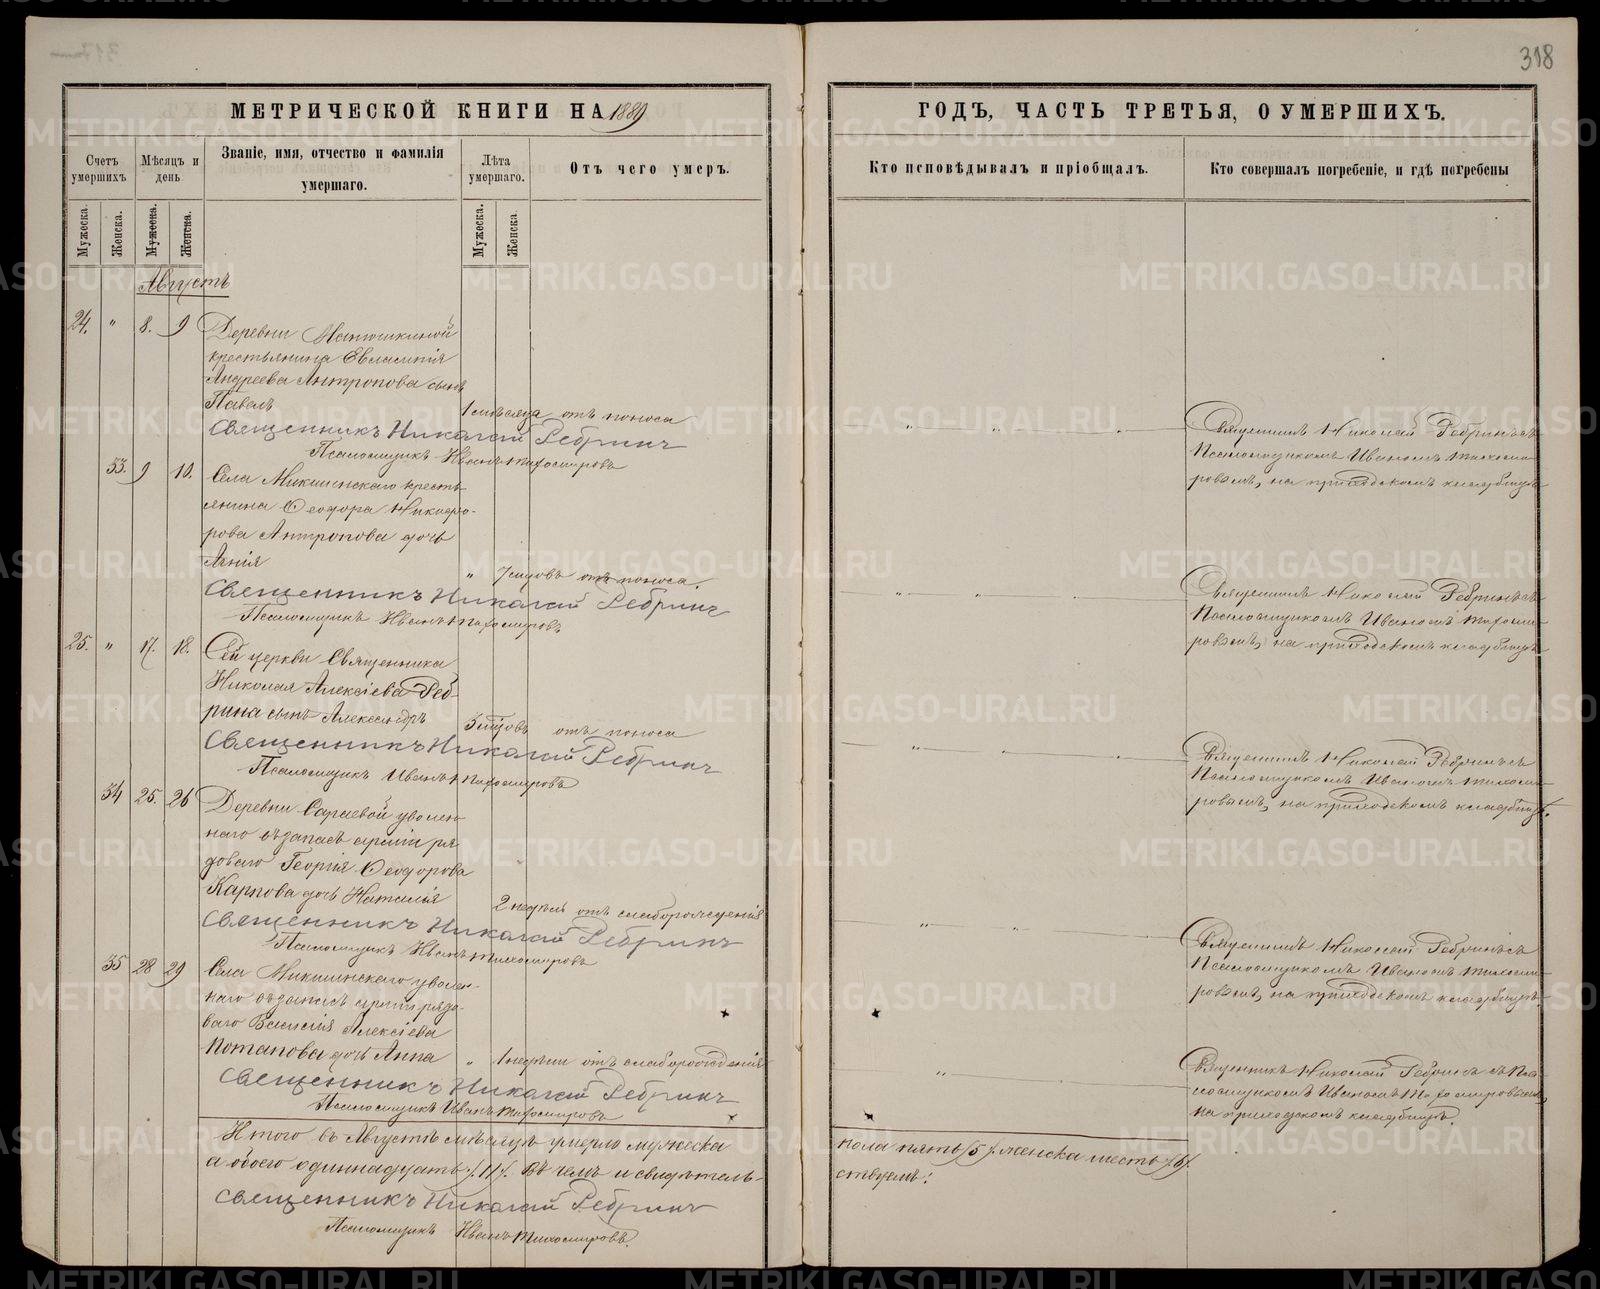 318
МЕТРИЧЕСКОЙ КНИГИ НА 1889
ГОДЪ, ЧАСТЬ ТРЕТЬЯ, О УМЕРШИХЪ.
Счетъ умершихъ.
Мѣсяцъ и день.
Званіе, имя, отчество и фамилія умершаго.
Лѣта умершаго.
Отъ чего умеръ.
Кто исповѣдывалъ и пріобщалъ.
Кто совершалъ погребеніе, и гдѣ погребены
Мужеска. Женска. Мужеска. Женска. Мужеска. Женска.
Августъ
24. " 8. 9
Деревни Матюшкиной
крестьянина Евлампія
Андреева Антропова сынъ
Павелъ
1 мѣсяца отъ поноса
Священникъ Николай Ребринъ
Псаломщикъ Иванъ Тихомировъ
Священникъ Николай Ребринъ съ
Псаломщикомъ Иваномъ Тихоми-
ровымъ, на приходскомъ кладбищѣ
33. 9 10.
Села Микшинскаго кресть-
янина Ѳеодора Никифо-
рова Антропова дочь
" отъ поноса.
Священникъ Николай Ребринъ
Псаломщикъ Иванъ Тихомировъ
Священникъ Николай Ребринъ съ
Псаломщикомъ Иваномъ Тихоми-
ровымъ, на приходскомъ кладбищѣ
25. " 17. 18.
Сей церкви Священника
Николая Алексіева Реб-
рина сынъ Александръ
отъ поноса
Священникъ Николай Ребринъ
Псаломщикъ Иванъ Тихомировъ
Священникъ Николай Ребринъ съ
Псаломщикомъ Иваномъ Тихоми-
ровымъ, на приходскомъ кладбищѣ.
34 25. 26
Деревни Сараевой уволен-
наго въ запасъ арміи ря-
доваго Георгія Ѳеодорова
Карпова дочь Наталія
2 недѣль отъ слаборожденія
Священникъ Николай Ребринъ
Псаломщикъ Иванъ Тихомировъ
Священникъ Николай Ребринъ съ
Псаломщикомъ Иваномъ Тихоми-
ровымъ, на приходскомъ кладбищѣ.
35 28 29
Села Микшинскаго уволен-
наго въ запасъ арміи рядо-
ваго Василія Алексіева
Потапова дочь Анна
" 1 недѣли отъ слаборожденія
Священникъ Николай Ребринъ
Псаломщикъ Иванъ Тихомировъ
Священникъ Николай Ребринъ съ Пса-
ломщикомъ Иваномъ Тихомировымъ,
на приходскомъ кладбищѣ.
Итого въ Августѣ мѣсяцѣ умерло мужеска
пола пять /5/. женска шесть /6/.
а обоего одиннадцать /11/. Въ чемъ и свидѣтель-
ствуемъ:
Священникъ Николай Ребринъ
Псаломщикъ Иванъ Тихомировъ.
METRIKI.GASO-URAL.RU